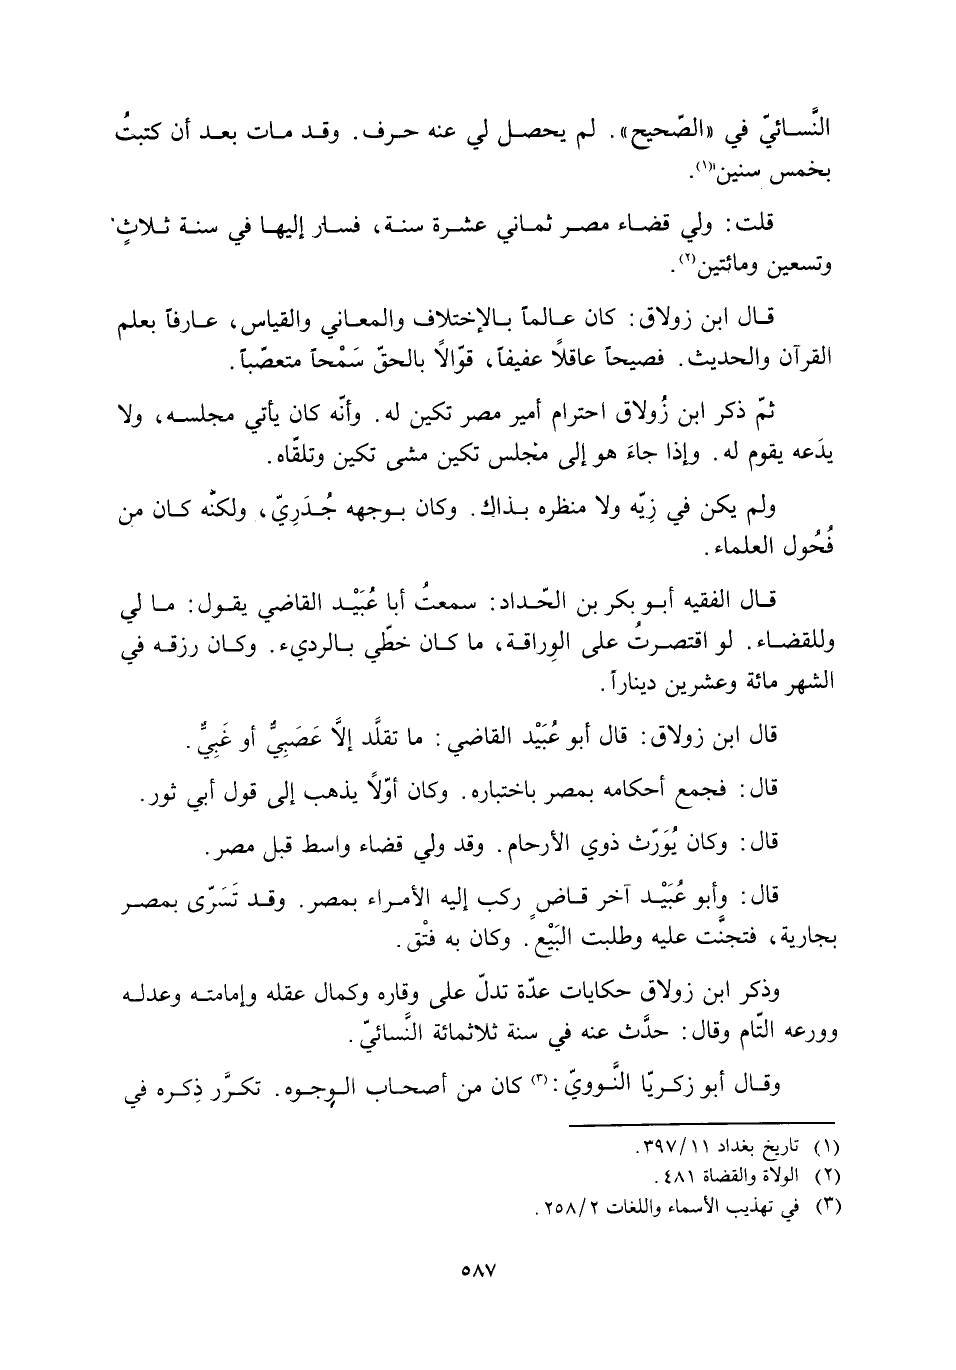 النَّسائيّ في «الصّحيح». لم يحصل لي عنه حرف. وقد مات بعد أن كتبتُ
بخمس سنين»(١).
قلت: ولي قضاء مصر ثماني عشرة سنة، فسار إليها في سنة ثلاثٍ
وتسعين ومائتين(٢).
قال ابن زولاق: كان عالماً بالإختلاف والمعاني والقياس، عارفاً بعلم
القرآن والحديث. فصيحاً عاقلاً عفيفاً، قوّالاً بالحقّ سَمْحاً متعصّباً.
ثمّ ذكر ابن زُولاق احترام أمير مصر تكين له. وأنّه كان يأتي مجلسه، ولا
يدَعه يقوم له. وإذا جاءَ هو إلى مجلس تكين مشى تكين وتلقّاه.
ولم يكن في زِيّه ولا منظره بذاك. وكان بوجهه جُدَرِيّ، ولكنّه كان من
فُحُول العلماء.
قال الفقيه أبو بكر بن الحّداد: سمعتُ أبا عُبَيْد القاضي يقول: ما لي
وللقضاء. لو اقتصرتُ على الوِراقة، ما كان خطّي بالرديء. وكان رزقه في
الشهر مائة وعشرين ديناراً.
قال ابن زولاق: قال أبو عُبَيْد القاضي: ما تقلَّد إلاَّ عَصَبِيٌّ أو غَبِيٌّ.
قال: فجمع أحكامه بمصر باختباره. وكان أوّلاً يذهب إلى قول أبي ثور.
قال: وكان يُوَرّث ذوي الأرحام. وقد ولي قضاء واسط قبل مصر.
قال: وأبو عُبَيْد آخر قاضٍ ركب إليه الأمراء بمصر. وقد تَسَرّى بمصر
بجارية، فتجنَّت عليه وطلبت البَيْع. وكان به فتْق.
وذكر ابن زولاق حكايات عدّة تدلّ على وقاره وكمال عقله وإمامته وعدله
وورعه التّام وقال: حدَّث عنه في سنة ثلاثمائة النَّسائيّ.
وقال أبو زكريّا النَّوويّ:(٣) كان من أصحاب الوجوه. تكرَّر ذِكره في
(١) تاريخ بغداد ٣٩٧/١١.
(٢) الولاة والقضاة ٤٨١.
(٣) في تهذيب الأسماء واللغات ٢٥٨/٢.
٥٨٧